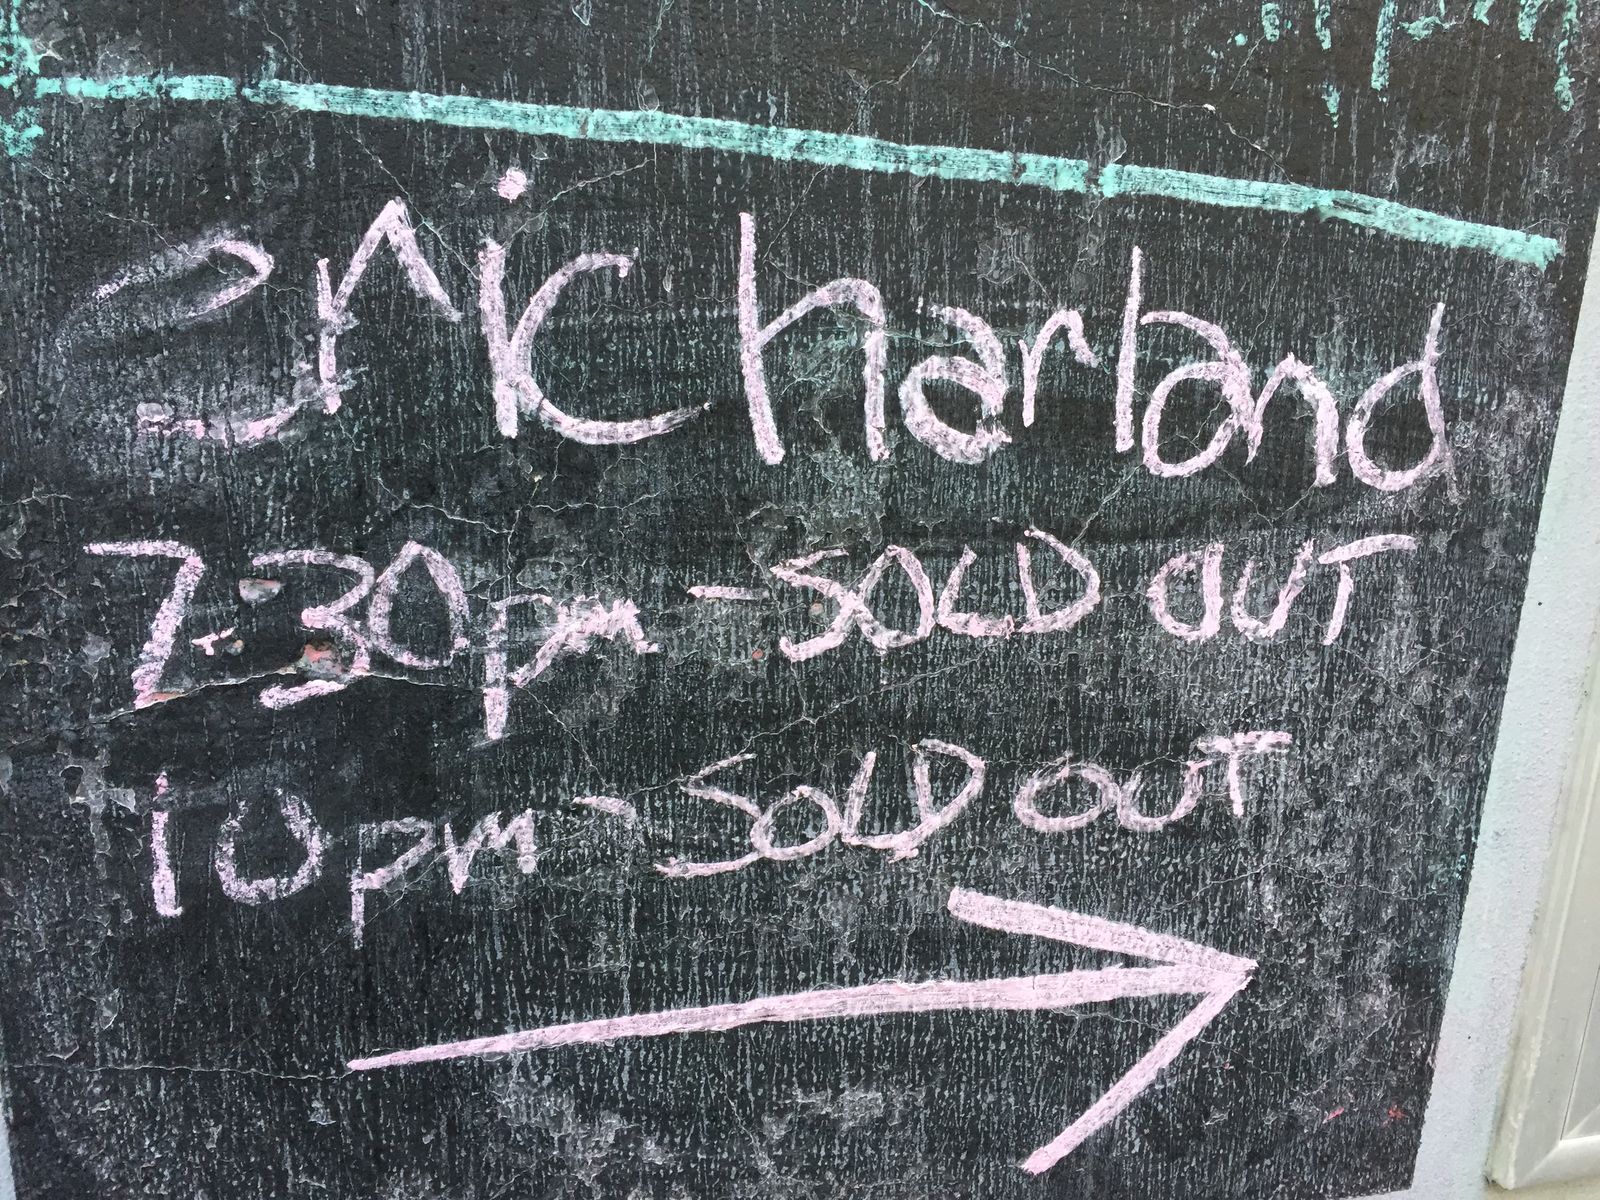 Eric harland
7-30pm - SOLD OUT
10pm - SOLD OUT